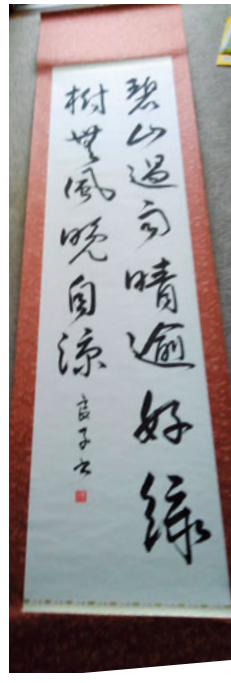 碧山過雨晴逾好緑
樹無風晩自涼
良子書